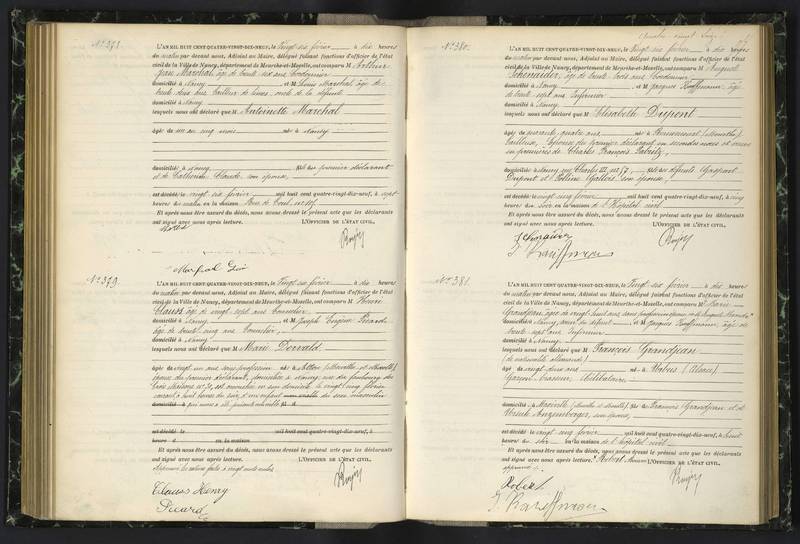 N° 378.
L'AN MIL HUIT CENT QUATRE-VINGT-DIX-NEUF, le Vingt six février à dix heures
du matin par devant nous, Adjoint au Maire, délégué faisant fonctions d'officier de l'état
civil de la Ville de Nancy, département de Meurthe-et-Moselle, ont comparu M Arthur
Jean Marchal, âgé de trente six ans Cordonnier
domicilié à Nancy et M Louis Marchal, âgé de
trente deux ans, tailleur de limes, oncle de la défunte
domicilié à Nancy
lesquels nous ont déclaré que M Antoinette Marchal
âgée de un an cinq mois née à Nancy
domiciliée à Nancy fille du premier déclarant
et de Catherine Claude, son épouse,
est décédée le vingt six février mil huit cent quatre-vingt-dix-neuf, à sept
heures du matin en la maison Rue de Toul
Et après nous être assuré du décès, nous avons dressé le présent acte que les déclarants
ont signé avec nous après lecture. L'OFFICIER DE L'ÉTAT CIVIL,
N° 379.
L'AN MIL HUIT CENT QUATRE-VINGT-DIX-NEUF, le Vingt six février à dix heures
du matin par devant nous, Adjoint au Maire, délégué faisant fonctions d'officier de l'état
civil de la Ville de Nancy, département de Meurthe-et-Moselle, ont comparu M Henri
Clauss âgé de vingt sept ans Camelier
domicilié à Nancy et M Joseph Eugène Picard
âgé de trente cinq ans Camelier,
domicilié à Nancy
lesquels nous ont déclaré que M Marie Dorvald
âgée de vingt un ans sans profession née à
épouse du premier déclarant, domiciliée à Nancy rue du faubourg des
trois maisons est accouchée en son domicile le vingt cinq février
courant à huit heures du soir, d'un enfant du sexe masculin
est décédé le mil huit cent quatre-vingt-dix-neuf, à
heures d en la maison
Et après nous être assuré du décès, nous avons dressé le présent acte que les déclarants
ont signé avec nous après lecture. L'OFFICIER DE L'ÉTAT CIVIL,
Clauss Henry
Picard
N° 380.
L'AN MIL HUIT CENT QUATRE-VINGT-DIX-NEUF, le Vingt six février à dix heures
du matin par devant nous, Adjoint au Maire, délégué faisant fonctions d'officier de l'état
civil de la Ville de Nancy, département de Meurthe-et-Moselle, ont comparu M August
Schenaider, âgé de trente trois ans Cordonnier
domicilié à Nancy et M Jacques Kauffmann, âgé
de trente sept ans Infirmier
domicilié à Nancy
lesquels nous ont déclaré que M Elisabeth Dupont
âgée de quarante quatre ans née à
Tailleuse, Epouse du premier déclarant en secondes noces et veuve
en premières de Charles François
domiciliée à Nancy rue Charles III, n° 17, fille des défunts Gaspard
Dupont et
est décédée le vingt cinq février mil huit cent quatre-vingt-dix-neuf, à cinq
heures du soir en la maison de l'hôpital civil
Et après nous être assuré du décès, nous avons dressé le présent acte que les déclarants
ont signé avec nous après lecture. L'OFFICIER DE L'ÉTAT CIVIL,
N° 381.
L'AN MIL HUIT CENT QUATRE-VINGT-DIX-NEUF, le Vingt six février à dix heures
du matin par devant nous, Adjoint au Maire, délégué faisant fonctions d'officier de l'état
civil de la Ville de Nancy, département de Meurthe-et-Moselle, ont comparu M Marie
Grandjean, âgée de vingt huit ans sans profession
domicilié à Nancy, sœur du défunt et M Jacques Kauffmann, âgé de
trente sept ans Infirmier
domicilié à Nancy
lesquels nous ont déclaré que M François Grandjean
(de nationalité allemande)
âgé de vingt deux ans né à (Alsace)
Garçon brasseur, Célibataire
domicilié à Maxéville (Meurthe et Moselle), fils de François Grandjean et de
Ursule son épouse,
est décédé le vingt cinq février mil huit cent quatre-vingt-dix-neuf, à huit
heures du soir en la maison de l'hôpital civil
Et après nous être assuré du décès, nous avons dressé le présent acte que les déclarants
ont signé avec nous après lecture. Robert L'OFFICIER DE L'ÉTAT CIVIL,
Robert